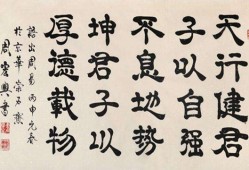 天行健君
子以自强
不息地势
坤君子以
厚德载物
语出周易丙申元春
於京华
周宏兴书